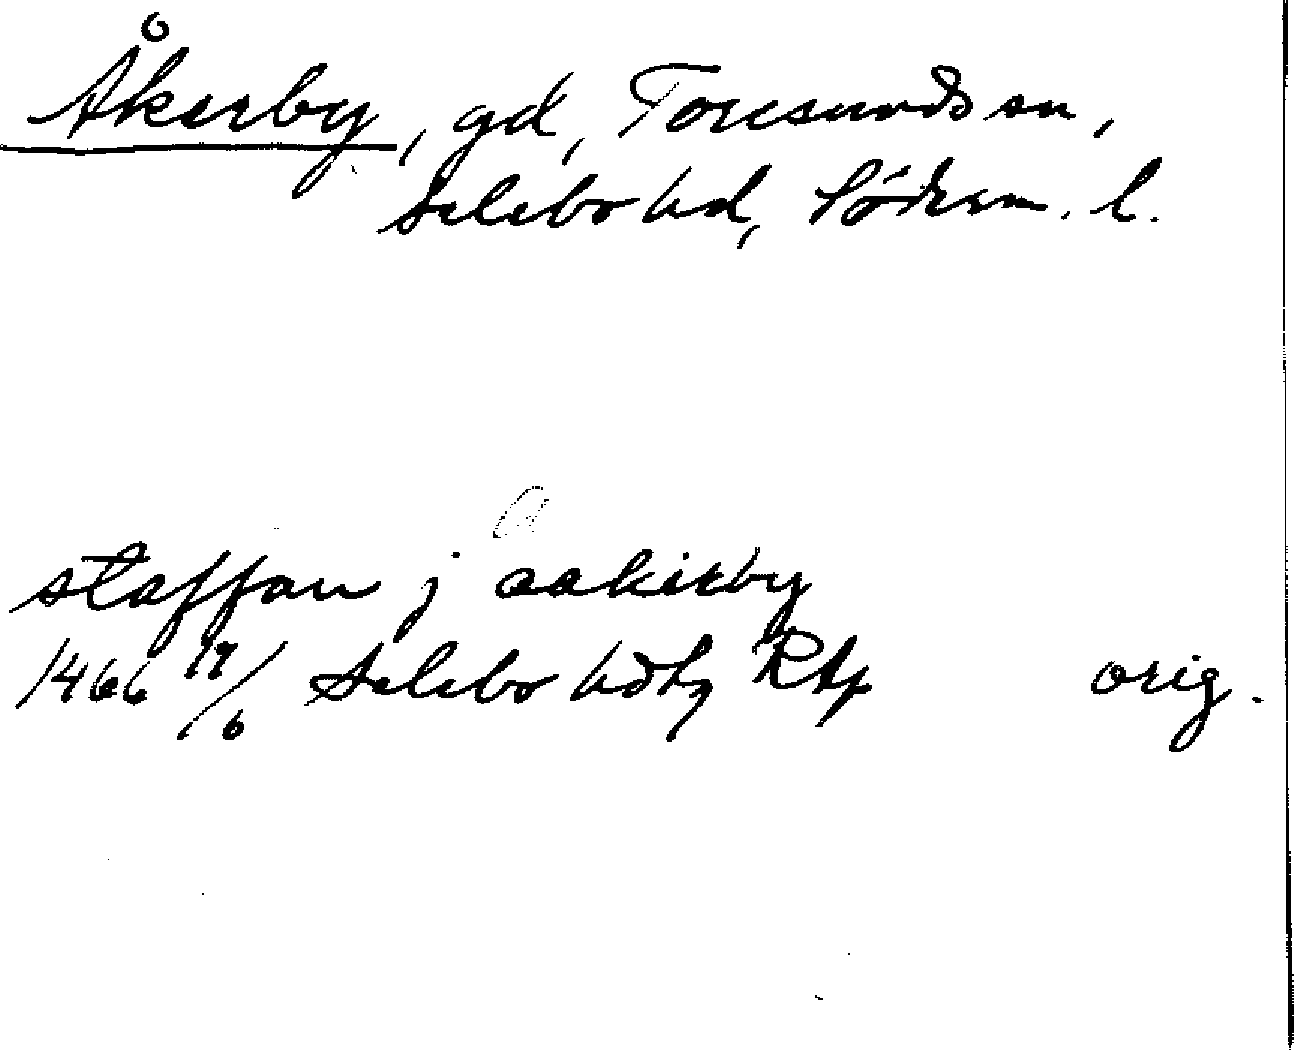 Åkerby, gd, Toresunds sn,
Selebo hd, Söderm. l.
staffan j aakirby
1466 17/6 Selebo hdtg RAp orig.